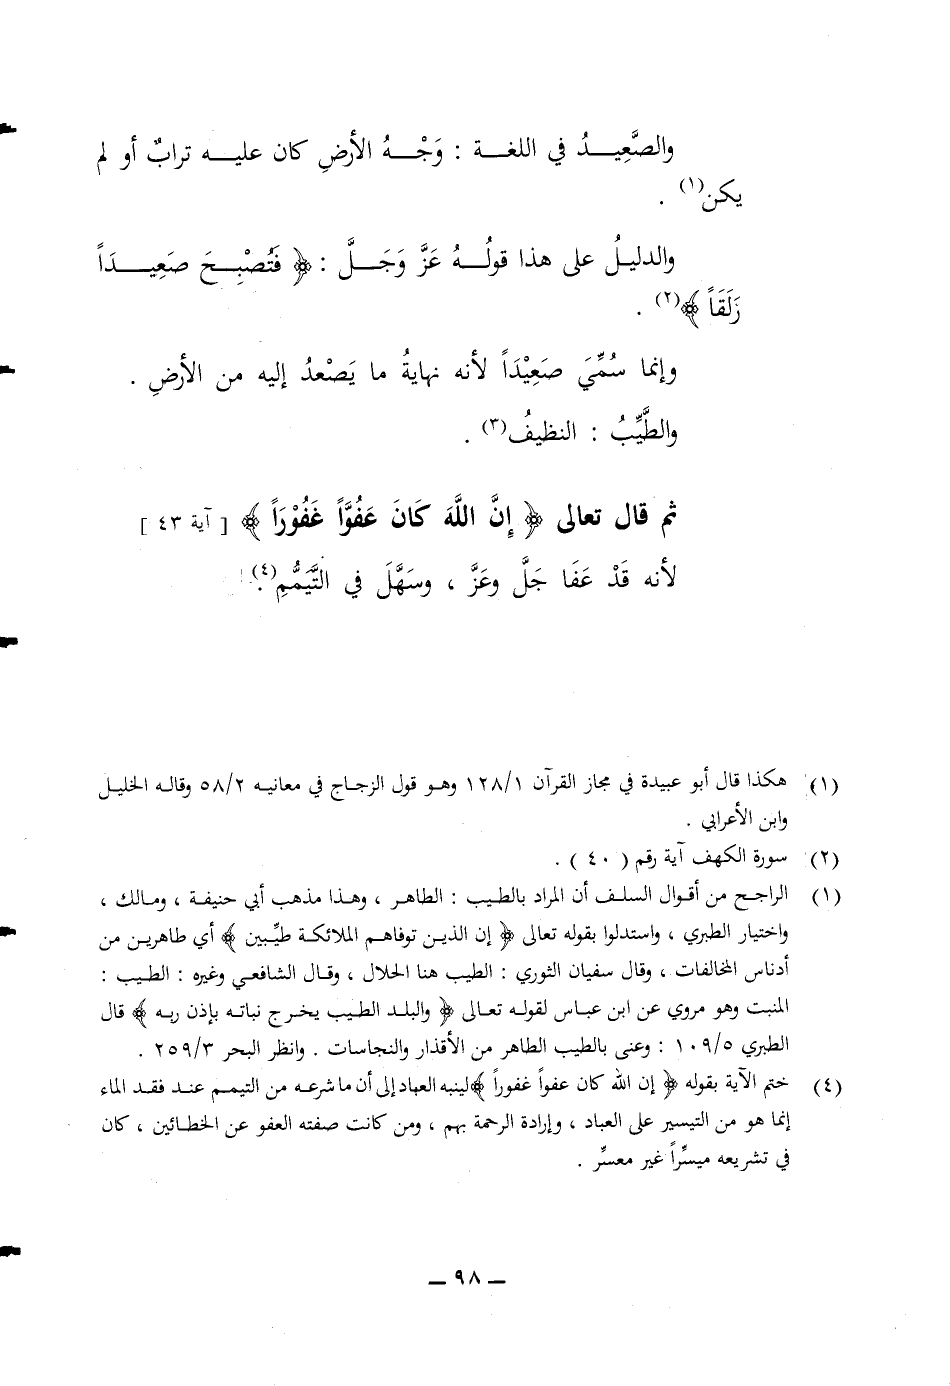 والصَّعِيــدُ في اللغــة : وَجْــهُ الأرضِ كان عليــه ترابٌ أو لم
يكن(١) .
والدليلُ على هذا قولُــهُ عَزَّ وَجَــلَّ : ﴿ فَتُصْبِــحَ صَعِيــدَاً
زَلَقَاً ﴾(٢) .
وإنما سُمِّيَ صَعِيْدَاً لأنه نهايةُ ما يَصْعدُ إليه من الأرضِ .
والطَّيِّبُ : النظيفُ(٣) .
ثم قال تعالى ﴿ إِنَّ اللَّهَ كَانَ عَفُوَّاً غَفُوْرَاً ﴾ [ آية ٤٣ ]
لأنه قَدْ عَفَا جَلَّ وعَزَّ ، وسَهَّلَ في التَّيَمُّمِ(٤).
(١) هكذا قال أبو عبيدة في مجاز القرآن ١٢٨/١ وهو قول الزجاج في معانيه ٥٨/٢ وقاله الخليل
وابن الأعرابي .
(٢) سورة الكهف آية رقم ( ٤٠ ) .
(١) الراجح من أقوال السلف أن المراد بالطيب : الطاهر ، وهذا مذهب أبي حنيفة ، ومالك ،
واختيار الطبري ، واستدلوا بقوله تعالى ﴿ إن الذين توفاهم الملائكة طيِّبين ﴾ أي طاهرين من
أدناس المخالفات ، وقال سفيان الثوري : الطيب هنا الحلال ، وقال الشافعي وغيره : الطيب :
المنبت وهو مروي عن ابن عباس لقوله تعالى ﴿ والبلد الطيب يخرج نباته بإذن ربه ﴾ قال
الطبري ١٠٩/٥ : وعنى بالطيب الطاهر من الأقذار والنجاسات . وانظر البحر ٢٥٩/٣ .
(٤) ختم الآية بقوله ﴿ إن الله كان عفواً غفوراً ﴾ لينبه العباد إلى أن ما شرعه من التيمم عند فقد الماء
إنما هو من التيسير على العباد ، وإرادة الرحمة بهم ، ومن كانت صفته العفو عن الخطائين ، كان
في تشريعه ميسِّراً غير معسِّر .
ــ ٩٨ ــ